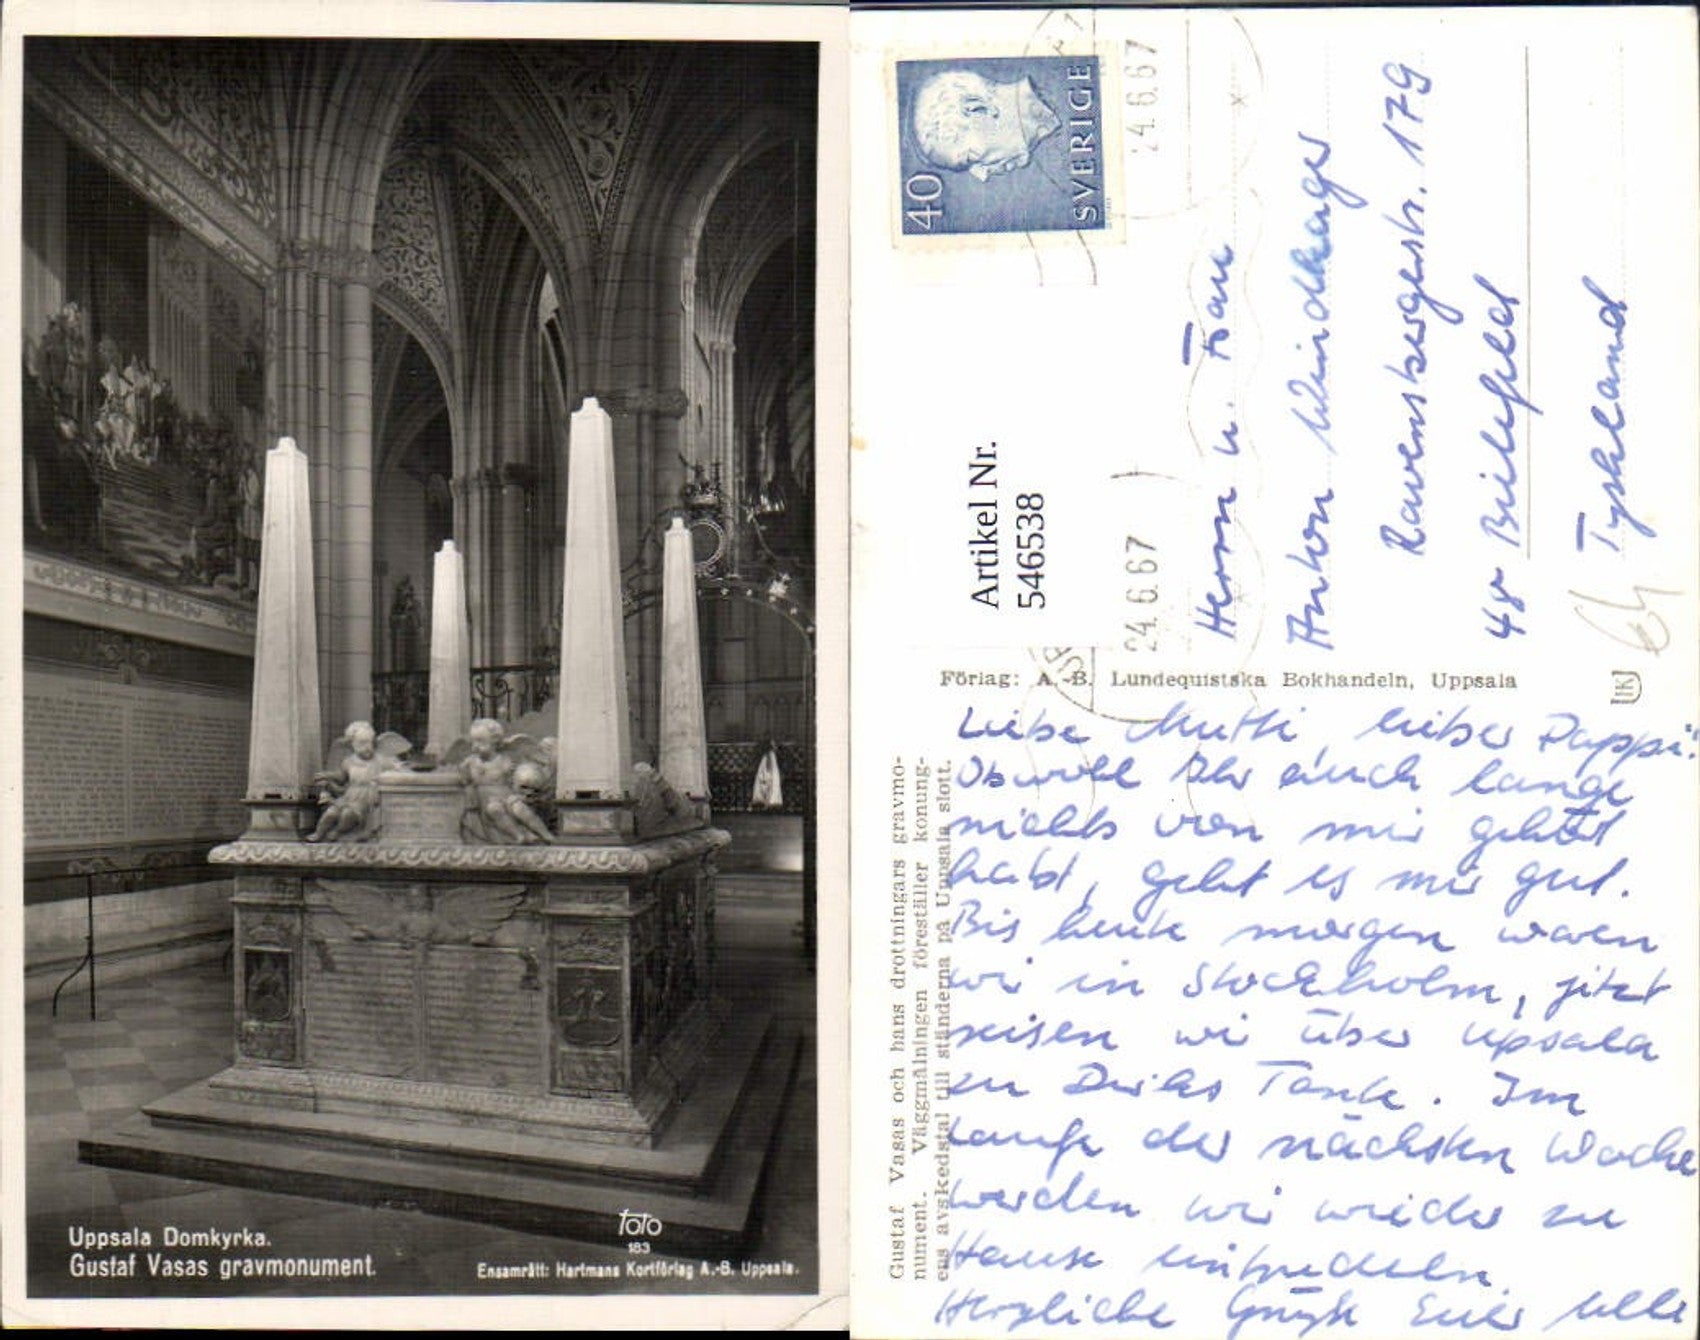 Uppsala Domkyrka.
Gustaf Vasas gravmonument.
foto
183
Ensamrätt: Hartmans Kortförlag A.-B. Uppsala.
40
SVERIGE
24.6.67
24.6.67
Artikel Nr.
546538
Herrn u. Frau
Anton Windhager
Ravensbergerstr. 179
48 Bielefeld
Tyskland
Förlag: A.-B. Lundequistska Bokhandeln, Uppsala
Gustaf Vasas och hans drottningars gravmo-
nument. Väggmålningen föreställer konung-
ens avskedstal till ständerna på Uppsala slott.
Liebe Mutti, lieber Pappi!
Obwohl Ihr auch lange
nichts von mir gehört
habt, geht es mir gut.
Bis heute morgen waren
wir in Stockholm, jetzt
reisen wir über Uppsala
zu Dirks Tante. Im
Laufe der nächsten Woche
werden wir wieder zu
Hause eintrudeln.
Herzliche Grüße Euer